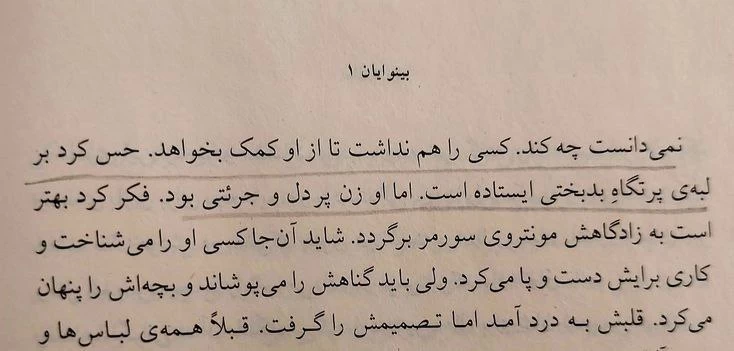 بینوایان ۱
نمی‌دانست چه کند. کسی را هم نداشت تا از او کمک بخواهد. حس کرد بر
لبه‌ی پرتگاهِ بدبختی ایستاده است. اما او زن پردل و جرئتی بود. فکر کرد بهتر
است به زادگاهش مونتروی سورمر برگردد. شاید آن‌جا کسی او را می‌شناخت و
کاری برایش دست و پا می‌کرد. ولی باید گناهش را می‌پوشاند و بچه‌اش را پنهان
می‌کرد. قلبش به درد آمد اما تصمیمش را گرفت. قبلاً همه‌ی لباس‌ها و